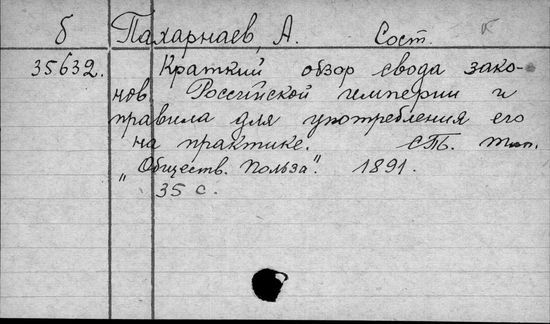 б Пахарнаев, А. Сост.
35632. Краткий обзор свода зако-
нов Российской империи и
правила для употребления его
на практике. СПб. тип.
„Обществ. Польза". 1891.
35 с.